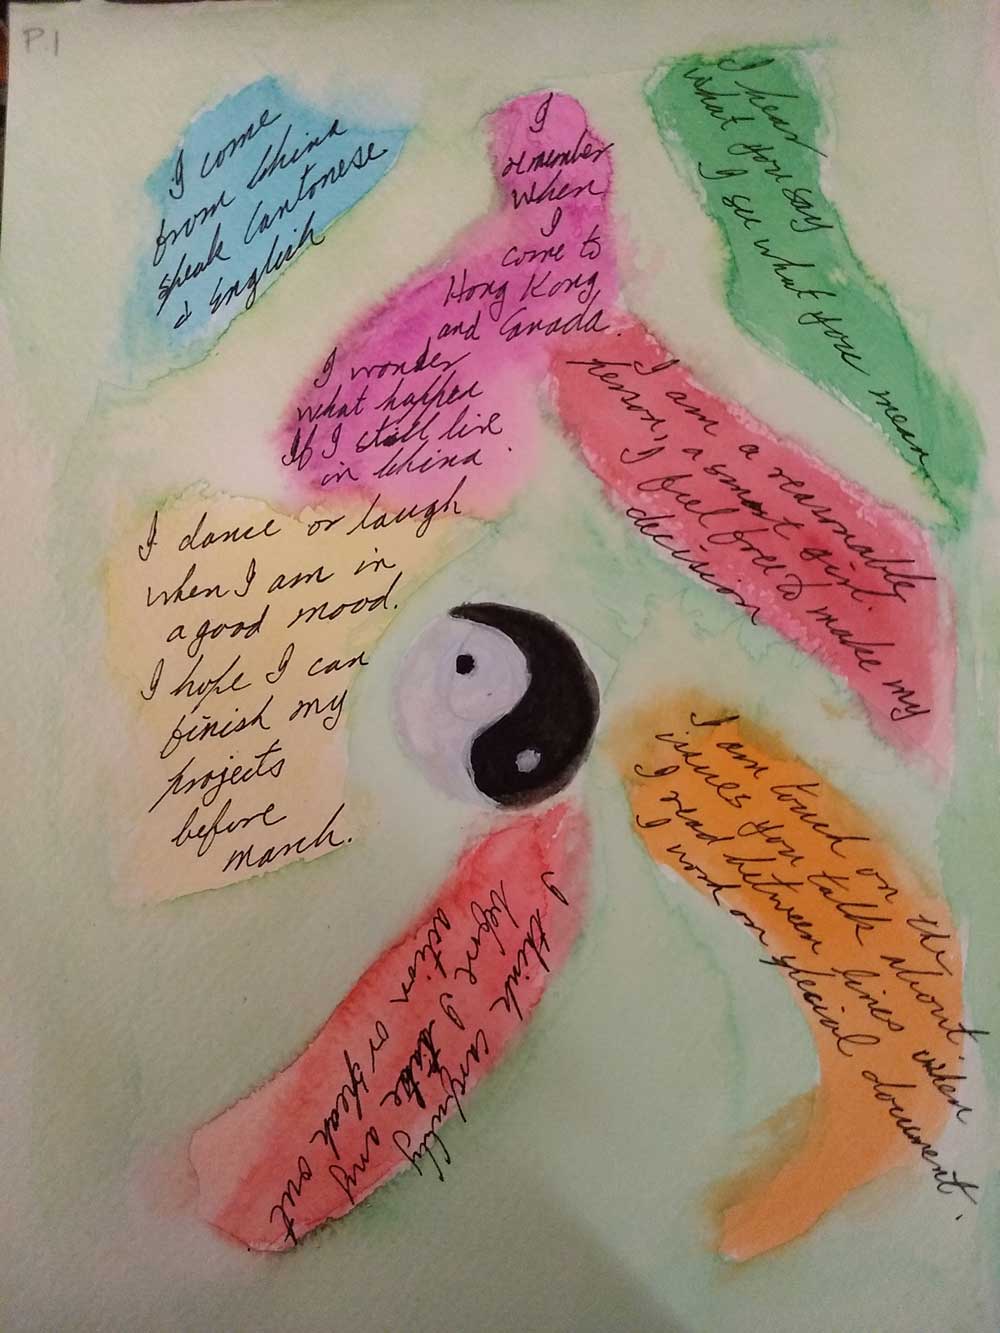 P.1
I come
from China
speak Cantonese
& English
I
remember
when
I
come to
Hong Kong
and Canada.
I wonder
what happen
If I still live
in China.
I hear
what you say
I see what you mean
I am a reasonable
person, a smart girl.
I feel free to make my
decision
I dance or laugh
when I am in
a good mood.
I hope I can
finish my
projects
before
march.
I am touch on the
issues you talk about.
I read between lines when
I work on special document.
I think carefully
before I take any
action or speak out